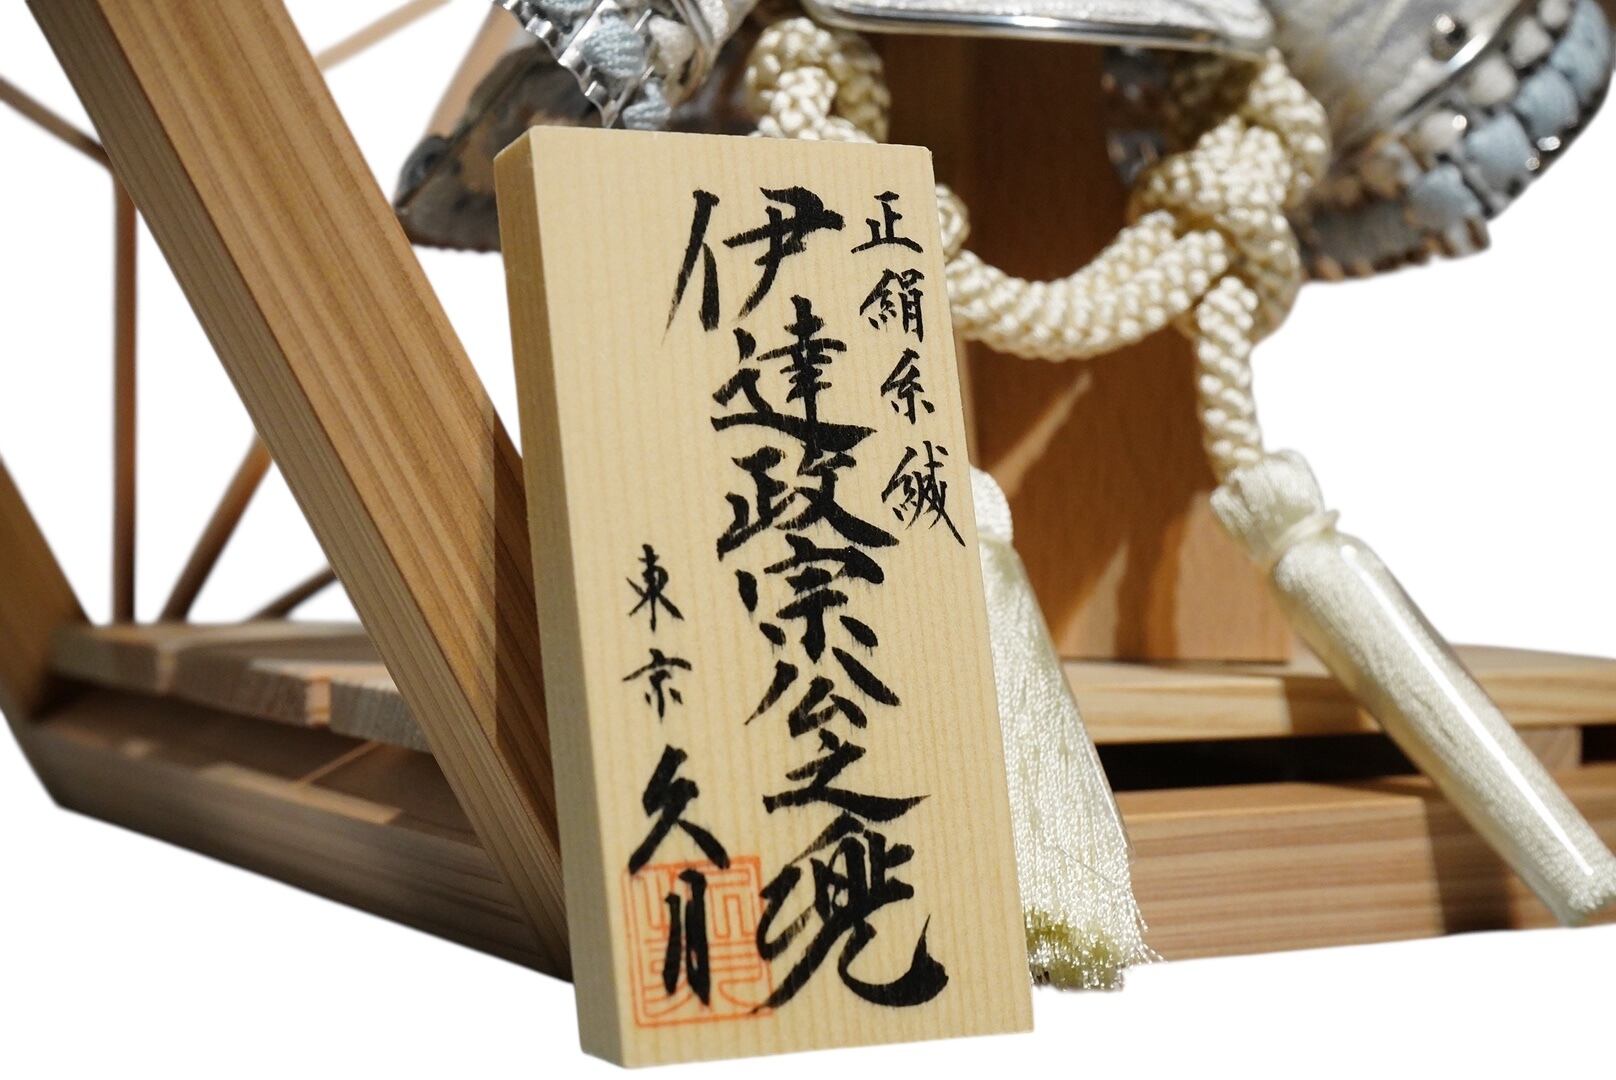 正絹糸縅
伊達政宗公之兜
東京久月